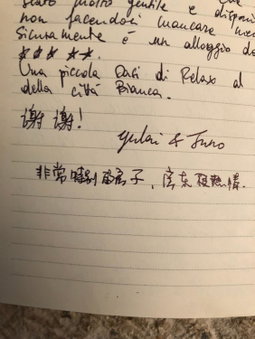 stato molto gentile e disponi
non facendoci mancare
Sicuramente è un alloggio da
★★★ ★★.
Una piccola Oasi di Relax al
della città Bianca.
谢谢!
& 
非常特别的房子，房东很热情.